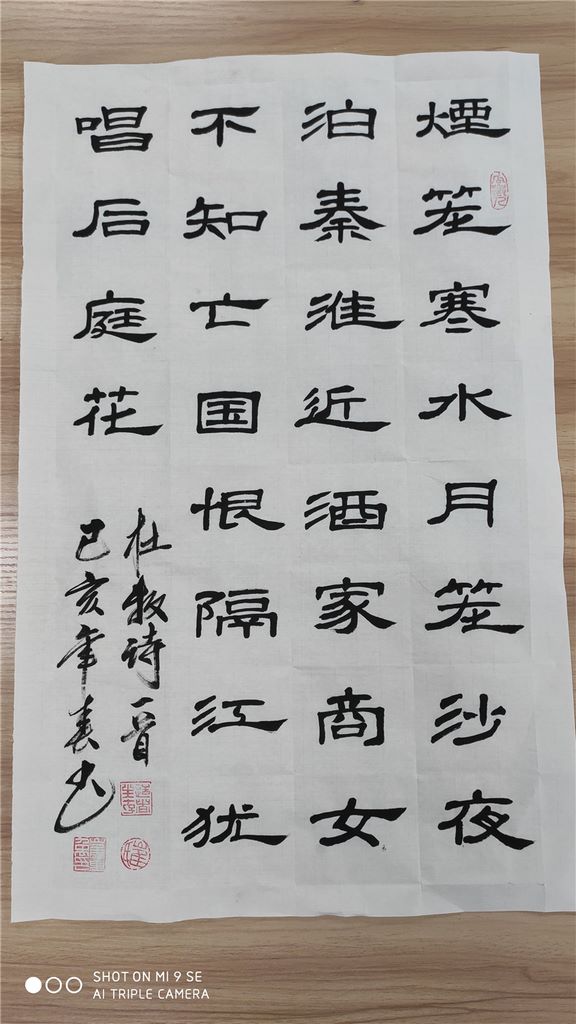 煙笼寒水月笼沙夜
泊秦淮近酒家商女
不知亡国恨隔江犹
唱后庭花
杜牧诗一首
己亥年春书
SHOT ON MI 9 SE
AI TRIPLE CAMERA